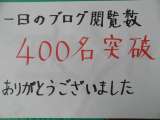 一日のブログ閲覧数
400名突破
ありがとうございました